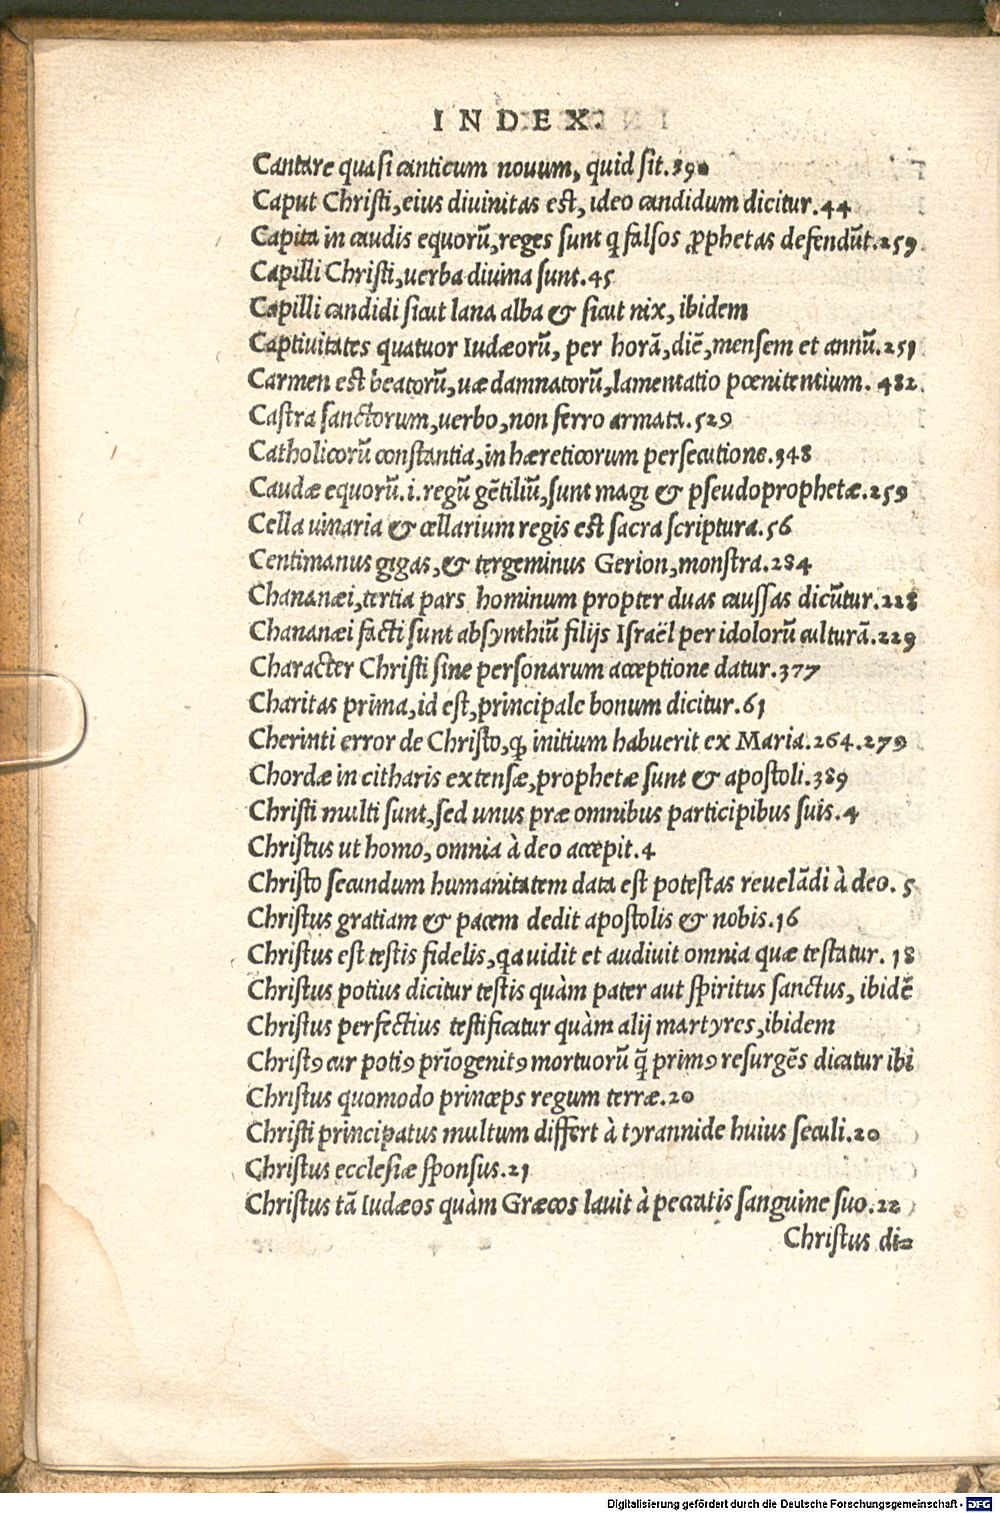 INDEX.
Cantare quasi canticum nouum, quid sit.390
Caput Christi, eius diuinitas est, ideo candidum dicitur.44
Capita in caudis equorũ, reges sunt q falsos ꝓphetas defendũt.259
Capilli Christi, uerba diuina sunt.45
Capilli candidi sicut lana alba & sicut nix, ibidem
Captiuitates quatuor Iudæorũ, per horã, diẽ, mensem et annũ.251
Carmen est beatorũ, uæ damnatorũ, lamentatio pœnitentium. 482.
Castra sanctorum, uerbo, non ferro armata.529
Catholicorũ constantia, in hæreticorum persecutione.348
Caudæ equorũ.i.regũ gẽtiliũ, sunt magi & pseudoprophetæ.259
Cella uinaria & cellarium regis est sacra scriptura.56
Centimanus gigas, & tergeminus Gerion, monstra.284
Chananæi, tertia pars hominum propter duas caussas dicũtur.228
Chananæi facti sunt absynthiũ filijs Israël per idolorũ culturã.229
Character Christi sine personarum acceptione datur.377
Charitas prima, id est, principale bonum dicitur.61
Cherinti error de Christo, ꝙ initium habuerit ex Maria.264.279
Chordæ in citharis extensæ, prophetæ sunt & apostoli.389
Christi multi sunt, sed unus præ omnibus participibus suis.4
Christus ut homo, omnia à deo accepit.4
Christo secundum humanitatem data est potestas reuelãdi à deo. 5
Christus gratiam & pacem dedit apostolis & nobis.16
Christus est testis fidelis, qa uidit et audiuit omnia quæ testatur. 18
Christus potius dicitur testis quàm pater aut spiritus sanctus, ibidẽ
Christus perfectius testificatur quàm alij martyres, ibidem
Christꝯ cur potiꝯ prĩogenitꝯ mortuorũ q̃ primꝯ resurgẽs dicatur ibi
Christus quomodo princeps regum terræ.20
Christi principatus multum differt à tyrannide huius seculi.20
Christus ecclesiæ sponsus.21
Christus tã Iudæos quàm Græcos lauit à peccatis sanguine suo.22
Christus di=
Digitalisierung gefördert durch die Deutsche Forschungsgemeinschaft - DFG